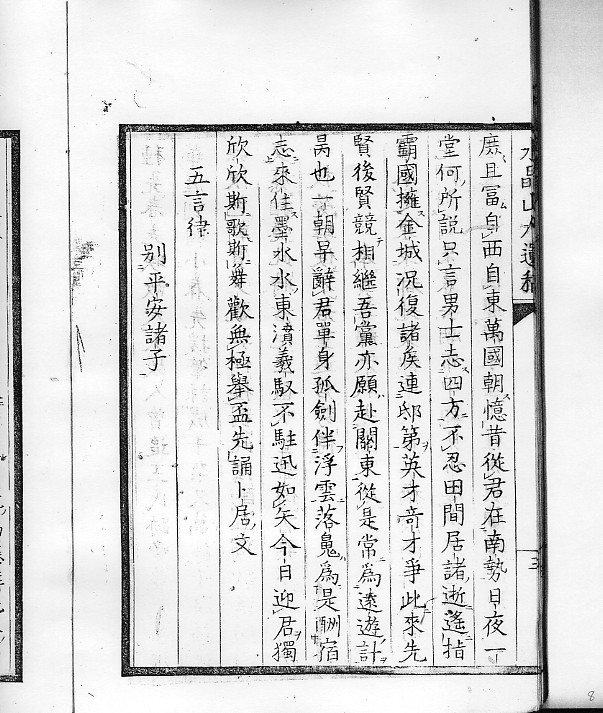 水晶山人遺稿
庶且冨自西自東萬國朝憶昔從君在南勢日夜一
堂何所説只言男士志四方不忍田間居諸逝遙指
霸國擁金城况復諸侯連邸第英才奇才爭此來先
賢後賢競相繼吾黨亦願赴關東從是常為遠遊計
昺也一朝早辭君單身孤劍伴浮雲落魄為是酬宿
志來住墨水水東濆羲馭不駐迅如矢今日迎君獨
欣欣斯歌斯舞歡無極舉盃先誦卜居文
五言律
別平安諸子
三
8